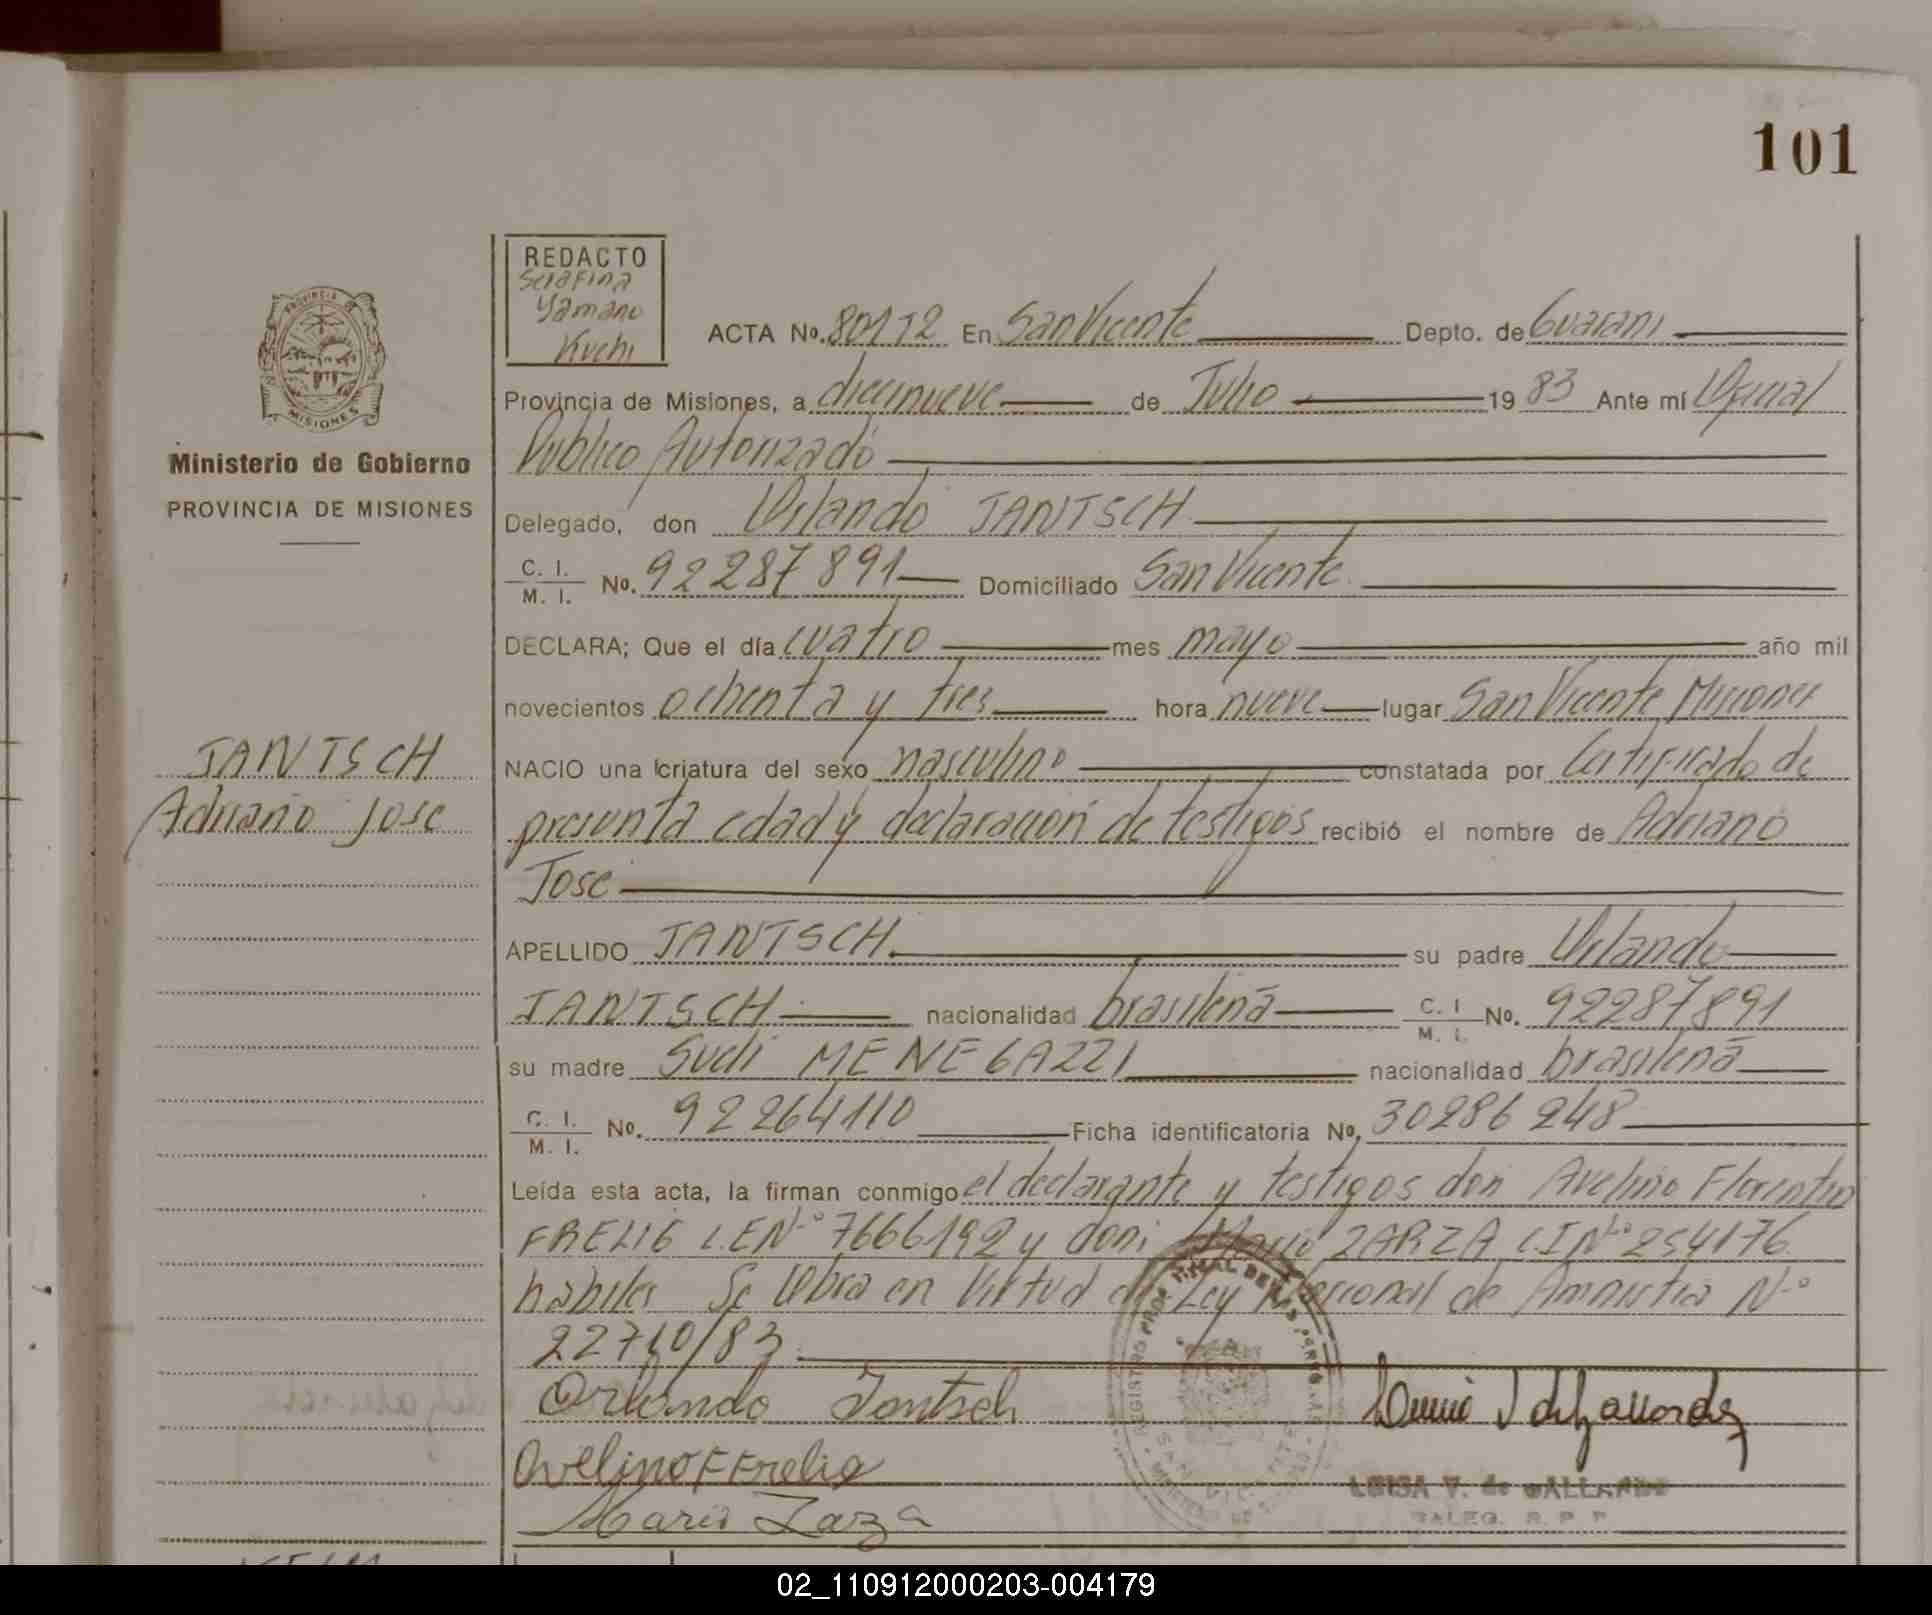 101
REDACTO
Serafina
Yamano
Kuchi
PROVINCIA DE
MISIONES
Ministerio de Gobierno
PROVINCIA DE MISIONES
ACTA No. En San Vicente Depto. de Guarani
Provincia de Misiones, a diecinueve de Julio 19 83 Ante mí Oficial
Publico Autorizado
Delegado, don Orlando JANTSCH
C. I. / M. I. No. 92287891 Domiciliado San Vicente
DECLARA; Que el día cuatro mes mayo año mil
novecientos ochenta y tres hora nueve lugar San Vicente Misiones
JANTSCH
Adriano Jose
NACIO una criatura del sexo masculino constatada por Certificado de
presunta edad y declaración de testigos recibió el nombre de Adriano
Jose
APELLIDO JANTSCH su padre Orlando
JANTSCH nacionalidad brasilena C. I. / M. I. No. 92287891
su madre Sueli MENEGAZZI nacionalidad brasilena
C. I. / M. I. No. 92264110 Ficha identificatoria No. 30286248
Leída esta acta, la firman conmigo el declarante y testigos don Avelino Florentino
FRELIG L.E Nº 7666192 y don Mario ZARZA C.I Nº 254176
habiles Se labra en Virtud de Ley Nacional de Amnistia Nº
22710/83
Orlando Jantsch
Avelino F Frelig
Mario Zarza
LUISA V. de GALLARDO
DALEG. R. P. P.
02_110912000203-004179